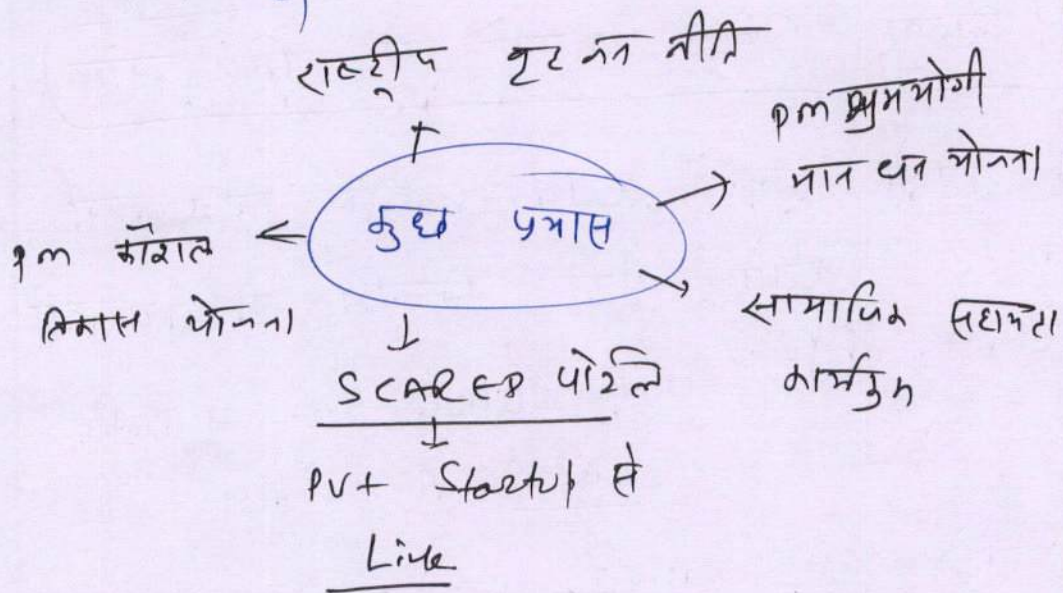 राष्ट्रीय वृद्ध जन नीति
pm श्रमयोगी
मान धन योजना
कुछ प्रयास
pm कौशल
विकास योजना
सामाजिक सहायता
कार्यक्रम
SCARED पोर्टल
Pvt Startup से
Link